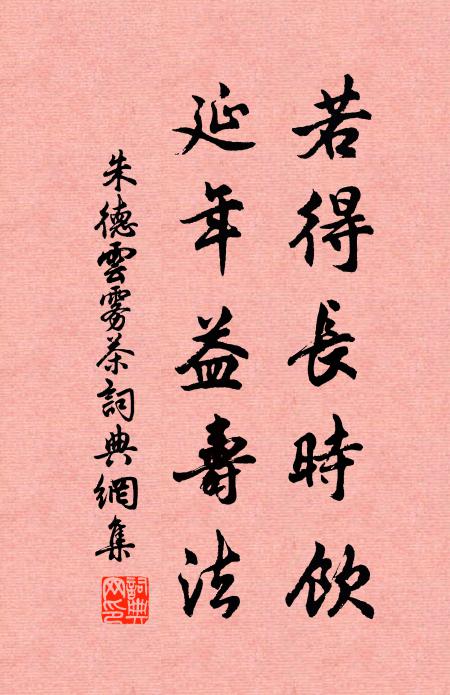 若得長時飲
延年益壽法
朱德雲霧茶詞典網集
詞典網印